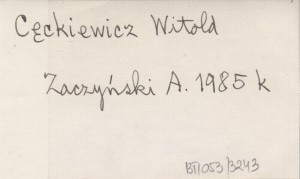 Cęckiewicz Witold
Zaczyński A. 1985 k
BT/053/3243